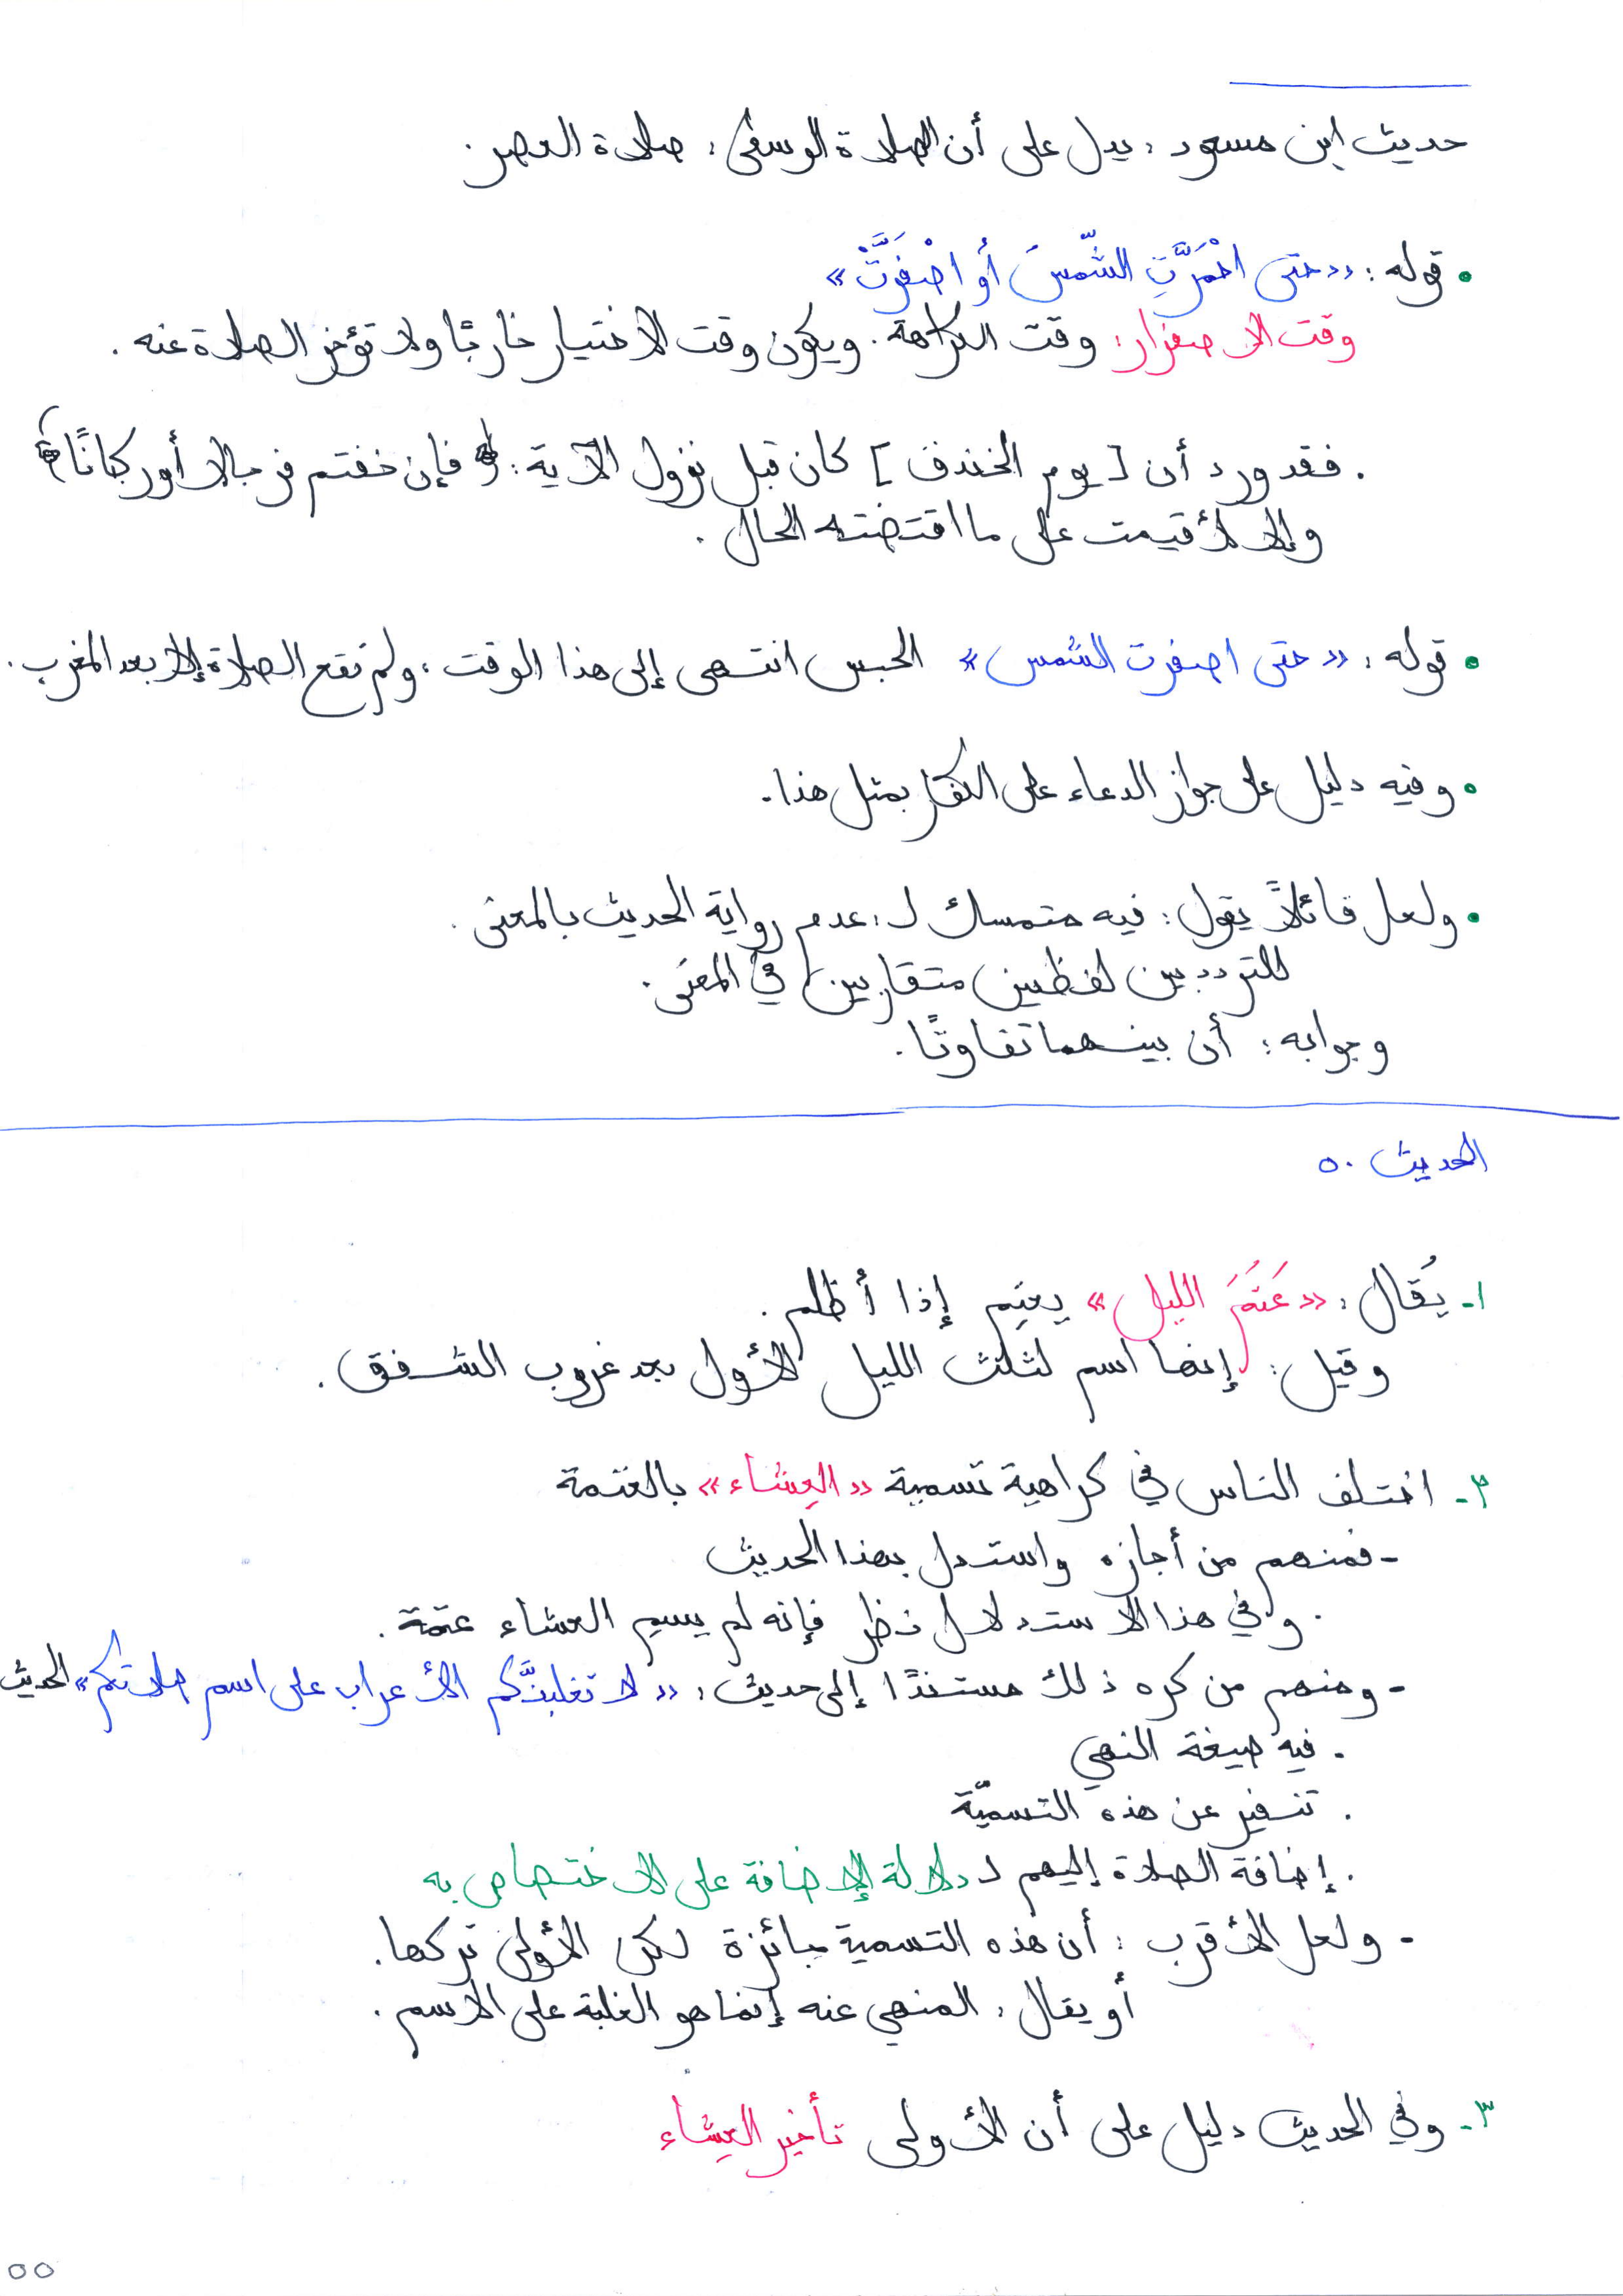 حديث ابن مسعود : يدل على أن الصلاة الوسطى : صلاة العصر .
• قوله : «حتى احْمَرَّتِ الشَّمسُ أو اصْفَرَّتْ»
وقت الاصفرار : وقت الكراهة . ويكون وقت الاختيار خارجًا ولا تؤخر الصلاة عنه .
. فقد ورد أن [ يوم الخندق ] كان قبل نزول الآية : ﴿ فإن خفتم فرجالا أو ركبانًا ﴾
وإلا لأقيمت على ما اقتضته الحال .
• قوله : «حتى اصفرت الشمس» الحبس انتهى إلى هذا الوقت ، ولم تقع الصلاة إلا بعد المغرب .
• وفيه دليل على جواز الدعاء على الكفار بمثل هذا .
• ولعل قائلاً يقول : فيه متمسك لـ : عدم رواية الحديث بالمعنى .
للتردد بين لفظين متقاربين في المعنى .
وجوابه : أن بينهما تفاوتًا .
الحديث ٥٠
١- يُقال : «عَتَمَ الليل» يعتِم إذا أظلم .
وقيل : إنها اسم لثلث الليل الأول بعد غروب الشفق .
٢- اختلف الناس في كراهية تسمية «العِشاء» بالعتمة
- فمنهم من أجازه واستدل بهذا الحديث
. وفي هذا الاستدلال نظر فإنه لم يسم العشاء عتمة .
- ومنهم من كره ذلك مستندًا إلى حديث : «لا تغلبنَّكم الأعراب على اسم صلاتكم» الحديث
. فيه صيغة النهي
. تنفير عن هذه التسميّة
. إضافة الصلاة إليهم لـ دلالة الإضافة على الاختصاص به
- ولعل الأقرب : أن هذه التسمية جائزة لكن الأولى تركها .
أو يقال : المنهي عنه إنما هو الغلبة على الاسم .
٣- وفي الحديث دليل على أن الأولى تأخير العِشاء
٥٥